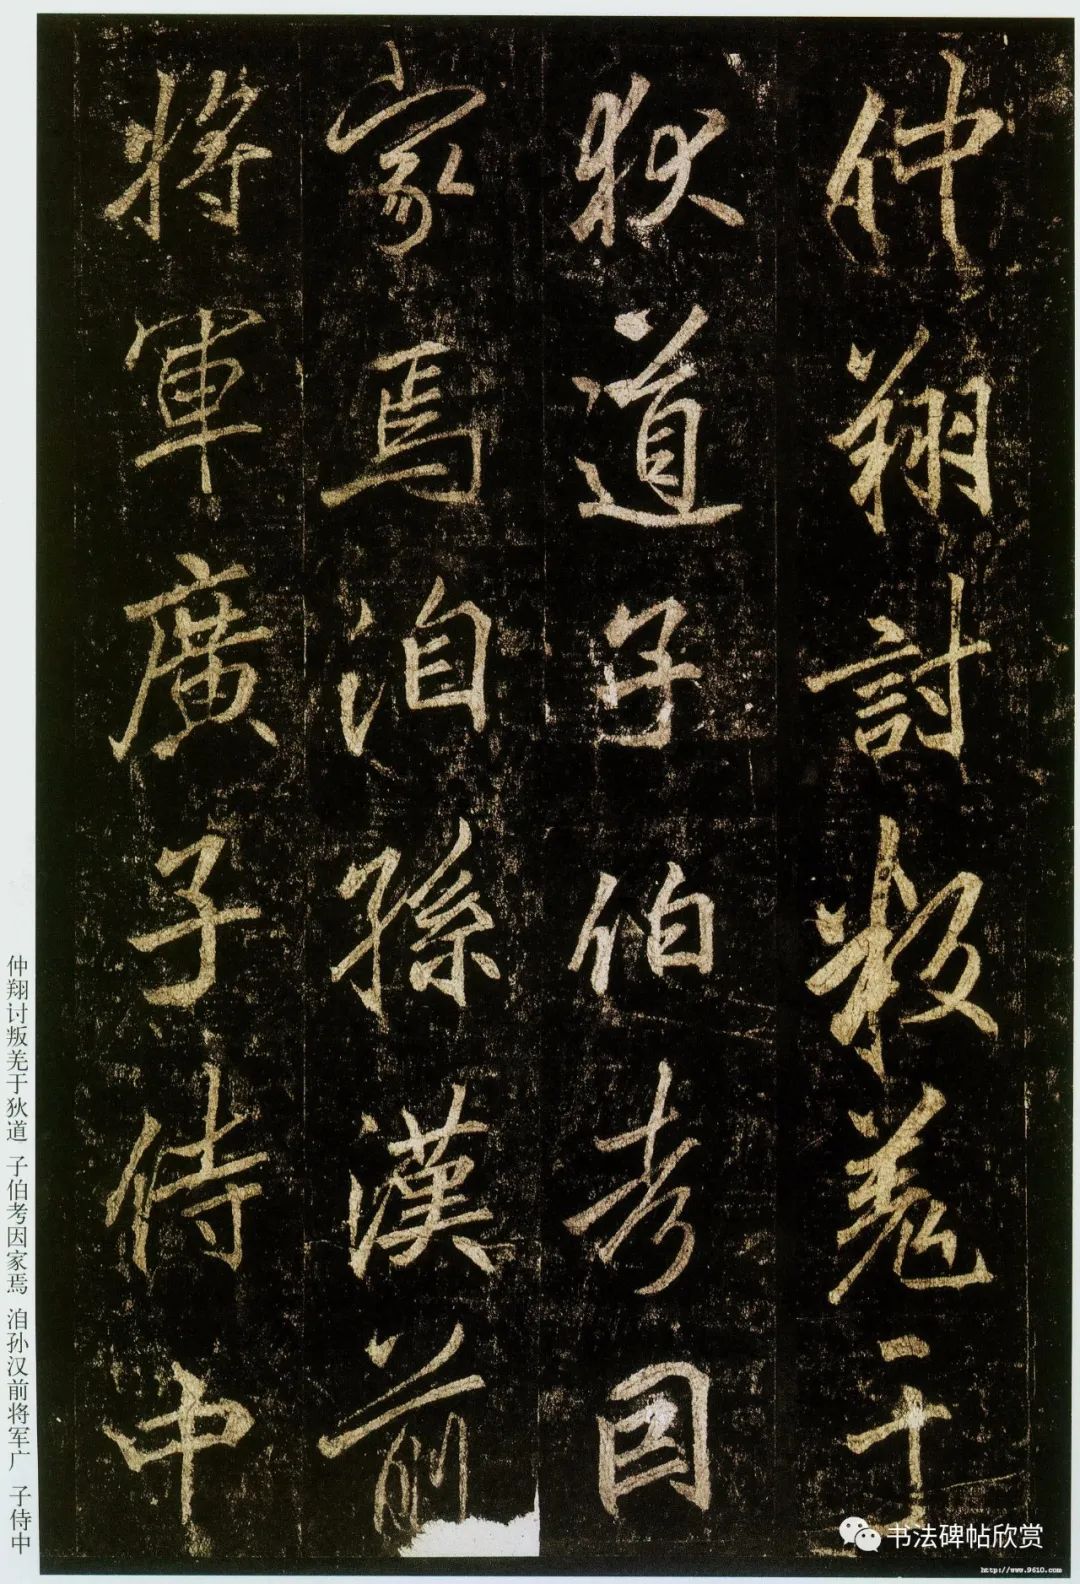 仲翔討叛羌于
狄道子伯考因
家焉洎孫漢前
將軍廣子侍中
仲翔讨叛羌于狄道 子伯考因家焉 洎孙汉前将军广 子侍中
书法碑帖欣赏
http://www.9610.com